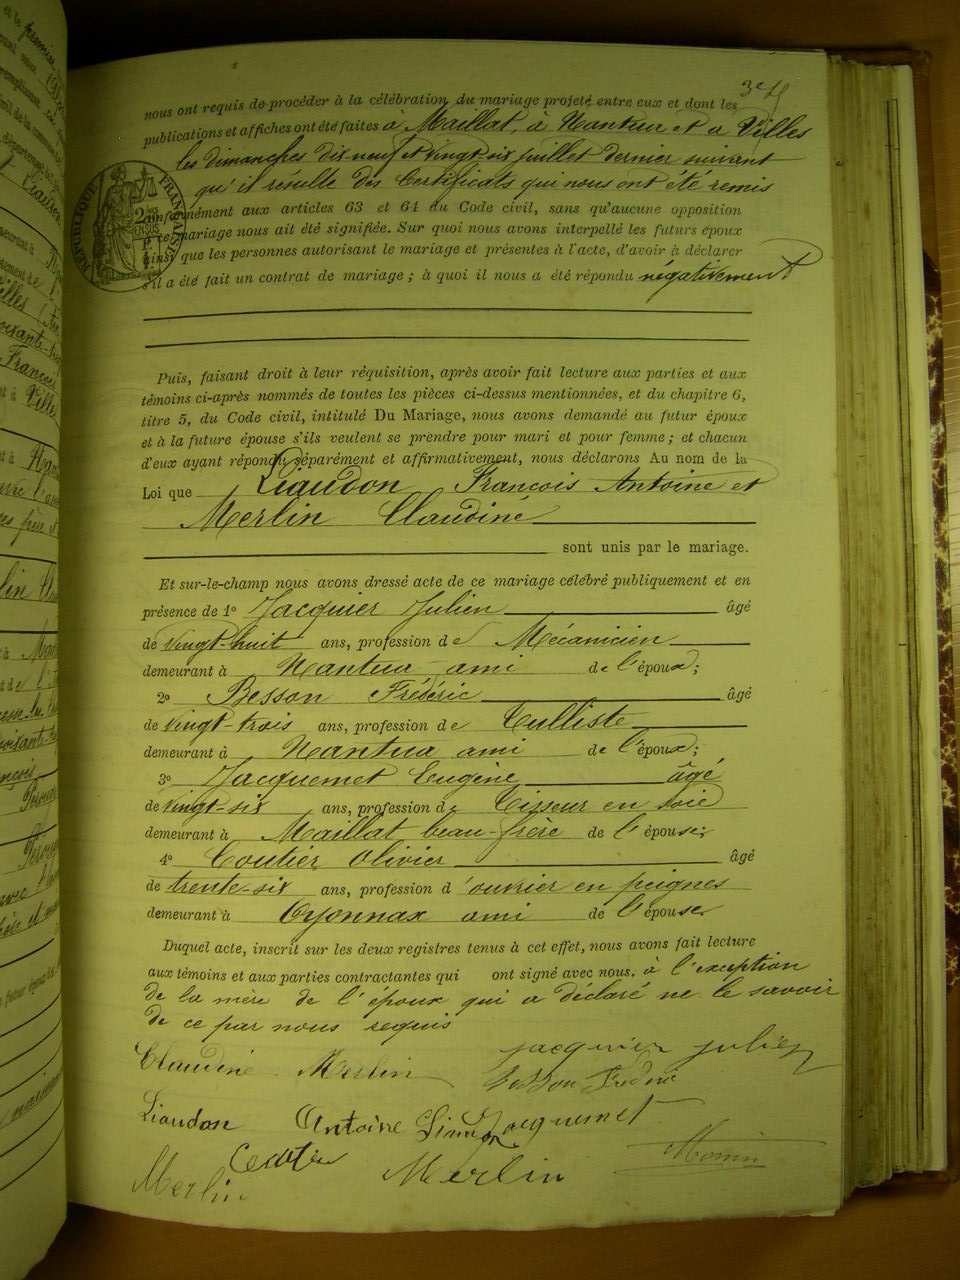 nous ont requis de procéder à la célébration du mariage projeté entre eux et dont les
publications et affiches ont été faites à Maillat, à Nantua et à Villes
les dimanches dix neuf et vingt six juillet dernier suivant
qu'il résulte des Certificats qui nous ont été remis
conformément aux articles 63 et 64 du Code civil, sans qu'aucune opposition
ce mariage nous ait été signifiée. Sur quoi nous avons interpellé les futurs époux
ainsi que les personnes autorisant le mariage et présentes à l'acte, d'avoir à déclarer
s'il a été fait un contrat de mariage ; à quoi il nous a été répondu négativement
RÉPUBLIQUE FRANÇAISE
Puis, faisant droit à leur réquisition, après avoir fait lecture aux parties et aux
témoins ci-après nommés de toutes les pièces ci-dessus mentionnées, et du chapitre 6,
titre 5, du Code civil, intitulé Du Mariage, nous avons demandé au futur époux
et à la future épouse s'ils veulent se prendre pour mari et pour femme ; et chacun
d'eux ayant répondu séparément et affirmativement, nous déclarons Au nom de la
Loi que Liaudon François Antoine et
Merlin Claudine
sont unis par le mariage.
Et sur-le-champ nous avons dressé acte de ce mariage célébré publiquement et en
présence de 1° Jacquier Julien âgé
de vingt-huit ans, profession de Mécanicien
demeurant à Nantua ami de l'époux;
2° Besson Frédéric âgé
de vingt-trois ans, profession de Tulliste
demeurant à Nantua ami de l'époux;
3° Jacquemet Eugène âgé
de vingt-six ans, profession de Tisseur en soie
demeurant à Maillat beau-frère de l'épouse;
4° Coutier Olivier âgé
de trente-six ans, profession d'ouvrier en peignes
demeurant à Oyonnax ami de l'épouse
Duquel acte, inscrit sur les deux registres tenus à cet effet, nous avons fait lecture
aux témoins et aux parties contractantes qui ont signé avec nous, à l'exception
de la mère de l'époux qui a déclaré ne le savoir
de ce par nous requis
Claudine Merlin Jacquier Julien
Besson Frédéric
Liaudon Antoine Liaudon Jacquemet
Merlin Coutier Merlin Monin